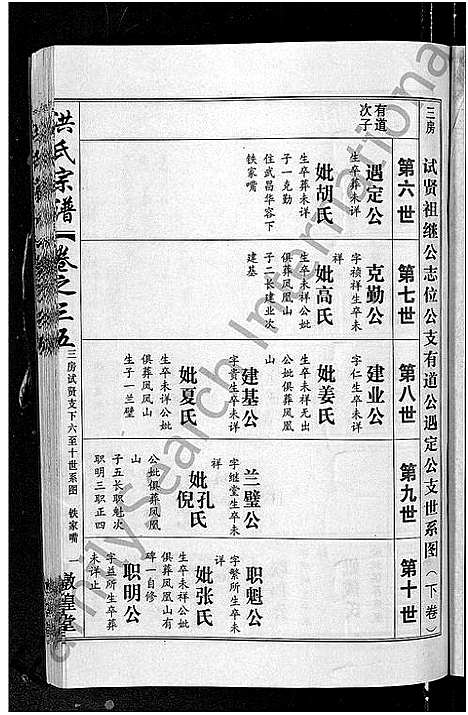 三房
试贤祖继公志位公支有道公遇定公支世系图（下卷）
第六世
第七世
第八世
第九世
第十世
有道
次子
遇定公
生卒葬未详
妣胡氏
生卒葬未详
子一克勤
住武昌华容下
铁家嘴
克勤公
字祯祥生卒未
详
妣高氏
生卒未详公妣
俱葬凤凰山
子二长建业次
建基
建业公
字仁生卒未详
妣姜氏
生卒未详无出
公妣俱葬凤凰
山
建基公
字贵生卒未详
妣夏氏
生卒未详公妣
俱葬凤凰山
生子一兰璧
兰璧公
字继堂生卒未
详
妣孔氏
倪氏
公妣俱葬凤凰
山
子五长职魁次
职明三职正四
职魁公
字繁所生卒未
详
妣张氏
生卒葬未详
俱葬凤凰山有
碑一自修
职明公
字兰所生卒葬
未详止
洪氏宗谱
卷之三五
三房试贤支下六至十世系图
铁家嘴
一
敦煌堂
FamilySearch International